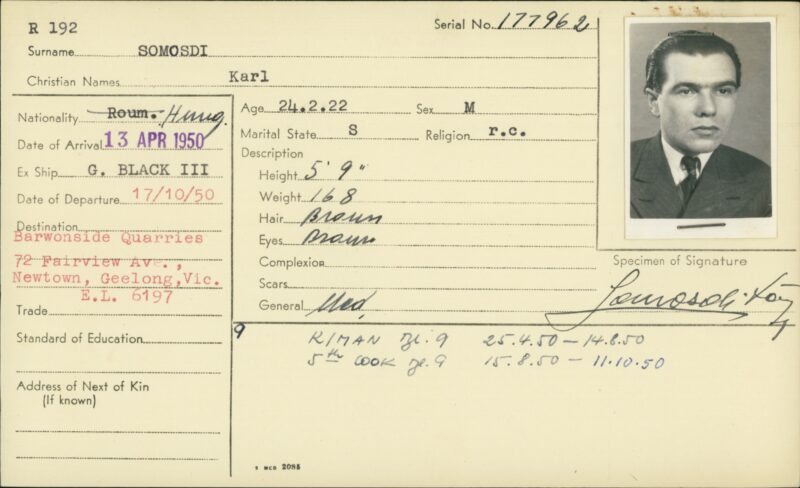 R 192
Serial No. 177962
Surname SOMOSDI
Christian Names Karl
Nationality Roum. Hung.
Date of Arrival 13 APR 1950
Ex Ship G. BLACK III
Date of Departure 17/10/50
Destination
Barwonside Quarries
72 Fairview Ave.,
Newtown, Geelong,Vic.
E.L. 6197
Trade
Standard of Education
Address of Next of Kin
(If known)
Age 24.2.22 Sex M
Marital State S Religion r.c.
Description
Height 5' 9"
Weight 168
Hair Brown
Eyes Brown
Complexion
Scars
General Med,
Specimen of Signature
Somosdi
9
K/MAN 9 25.4.50 — 14.8.50
5th COOK 9 15.8.50 — 11.10.50
2085